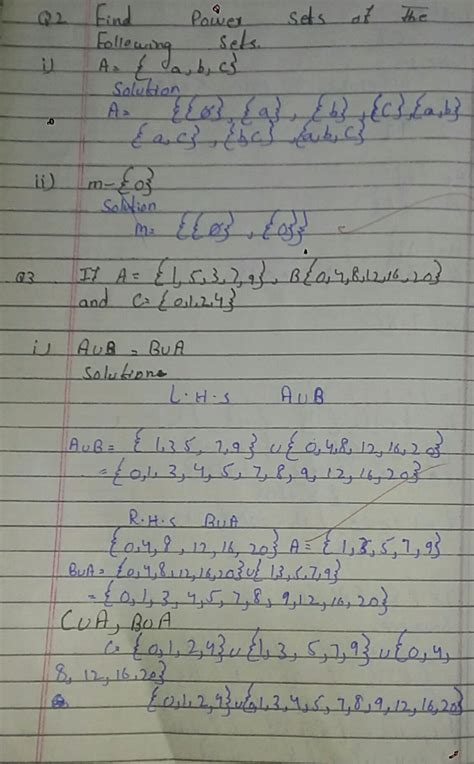 Q2 Find Power sets of the
Following sets.
i) A= {a,b,c}
Solution
A= {{ø}, {a}, {b}, {C},{a,b}
{a,c}, {bc}, {a,b,c}
ii) m-{0}
Solution
m= {{ø}, {0}}
Q3 If A= {1,5,3,7,9}, B{0,4,8,12,16,20}
and C= {0,1,2,4}
i) AUB = BUA
Solution
L.H.S AUB
AUB= {1,35, 7,9} U {0,4,8, 12, 16, 20}
= {0,1, 3, 4, 5, 7, 8, 9, 12, 16, 20}
R.H.S BUA
{0,4,8, 12, 16, 20} A = {1,3,5,7,9}
BUA= {0,4,8,12,16,20}U{13,5,7,9}
= {0,1,3, 4,5,7,8, 9,12,16,20}
CUA, BUA
C= {0,1,2,4}U{1,3, 5,7,9}U{0,4,
8, 12,16,20}
{0,1,2,4}U{0,1,3,4,5,7,8,9,12,16,20}